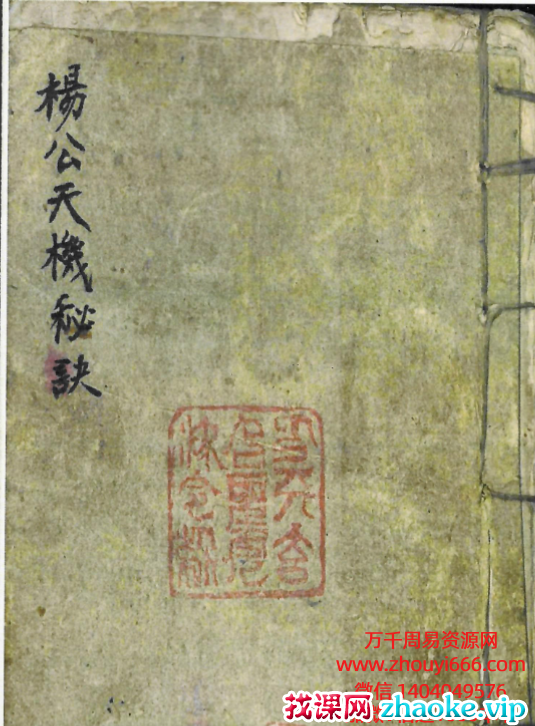 楊公天機秘訣
万千周易资源网
www.zhouyi666.com
微信 1404049576
找课网zhaoke.vip